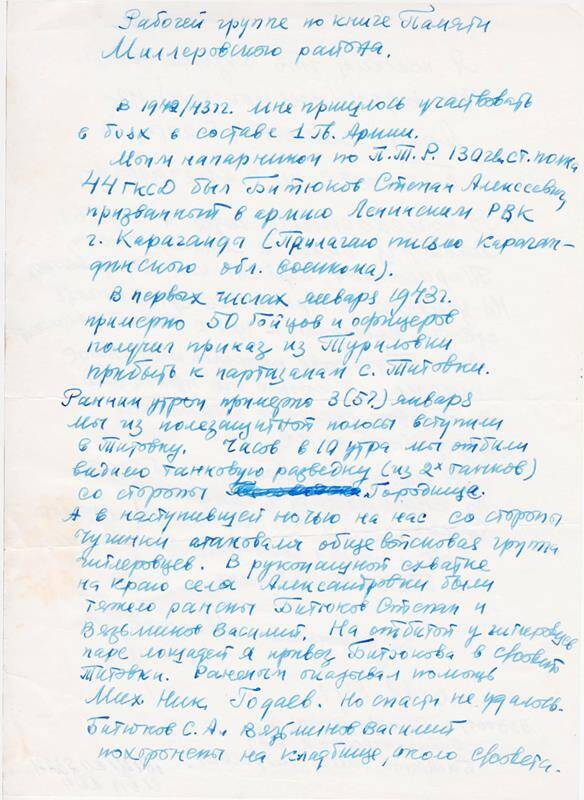 Рабочей группе по книге Памяти
Миллеровского района.
В 1942/43гг. мне пришлось участвовать
в боях в составе 1 Гв. Армии.
Моим напарником по П.Т.Р. 130 гв.ст. полка
44 гксд был Битюков Степан Алексеевич,
призванный в армию Ленинским РВК
г. Караганда (Прилагаю письмо Караган-
динского обл. военкома).
В первых числах января 1943г.
примерно 50 бойцов и офицеров
получил приказ из Туриловки
прибыть к партизанам с. Титовки.
Ранним утром примерно 3 (5?) января
мы из полезащитной полосы вступили
в Титовку. Часов в 10 утра мы отбили
видимо танковую разведку (из 2х танков)
со стороны Городища.
А в наступившей ночью на нас со стороны
Чугинки атаковала общевойсковая группа
гитлеровцев. В рукопашной схватке
на краю села Александровки были
тяжело ранены Битюков Степан и
Вязьминов Василий. На отбитой у гитлеровцев
паре лошадей я привез Битюкова в с/совет
Титовки. Раненым оказывал помощь
Мих. Ник. Годаев. Но спасти не удалось.
Битюков С.А. и Вязьминов Василий
похоронены на кладбище, около с/совета.